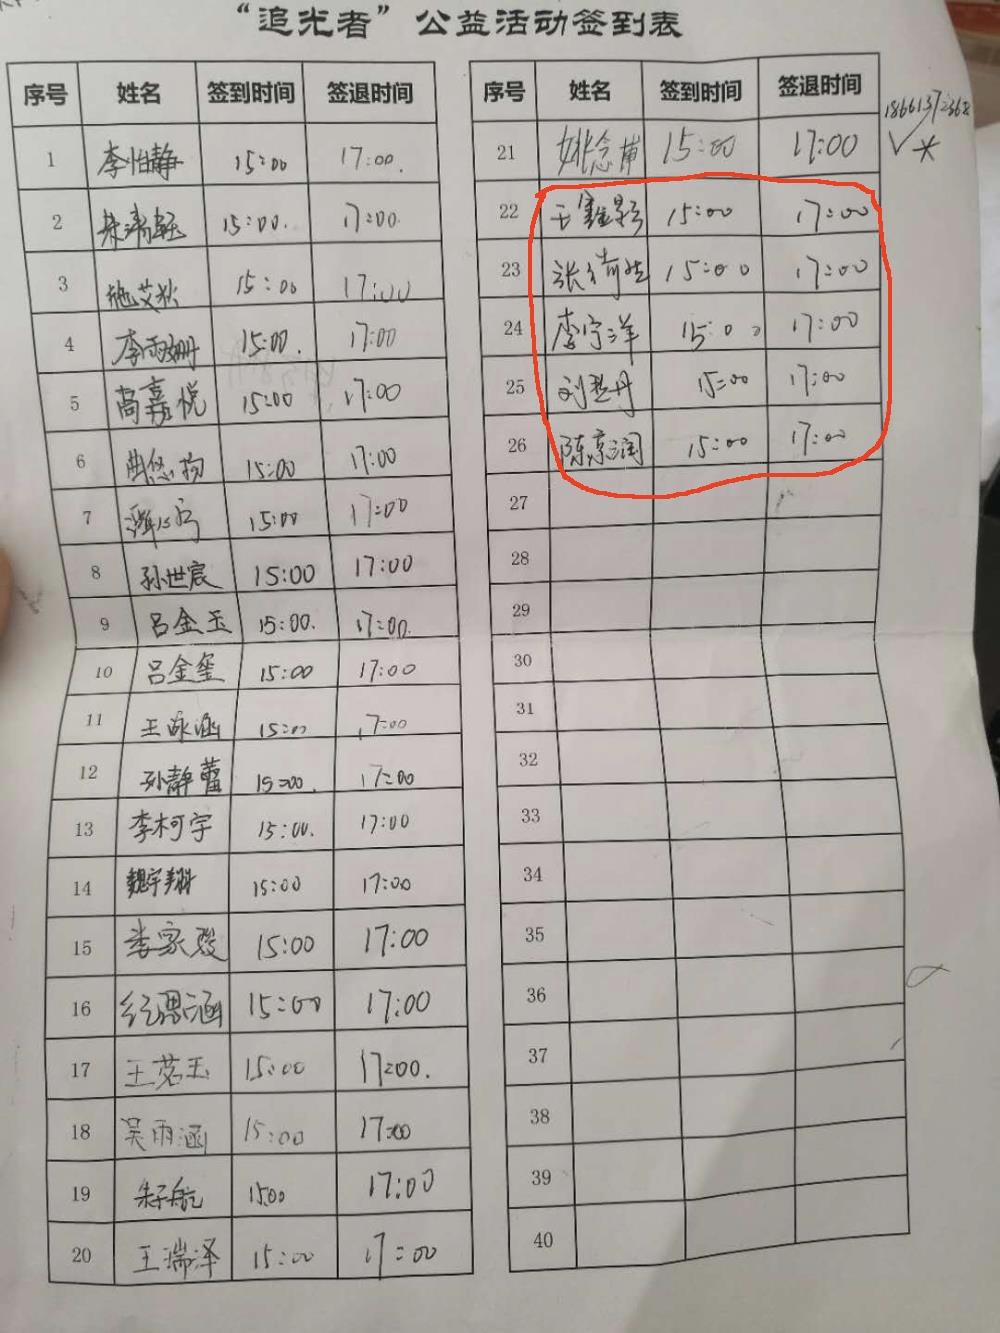 “追光者”公益活动签到表
序号 姓名 签到时间 签退时间
1 李怡静 15:00 17:00.
2 15:00. 17:00.
3 施艾狄 15:00 17:00
4 李雨姗 15:00. 17:00
5 高嘉悦 15:00 17:00
6 曲悠扬 15:00 17:00
7 15:00 17:00
8 孙世宸 15:00 17:00
9 吕金玉 15:00. 17:00.
10 吕金玺 15:00 17:00
11 王咏涵 15:00 17:00
12 孙静蕾 15:00. 17:00
13 李柯宇 15:00. 17:00
14 魏宇翔 15:00 17:00
15 娄家骏 15:00 17:00
16 纪思涵 15:00 17:00
17 王茗玉 15:00 17:00.
18 吴雨涵 15:00 17:00
19 朱子航 15:00 17:00
20 王瑞泽 15:00 17:00
序号 姓名 签到时间 签退时间
21 姚念甫 15:00 17:00
22 15:00 17:00
23 15:00 17:00
24 李宇洋 15:00 17:00
25 15:00 17:00
26 陈京润 15:00 17:00
27
28
29
30
31
32
33
34
35
36
37
38
39
40